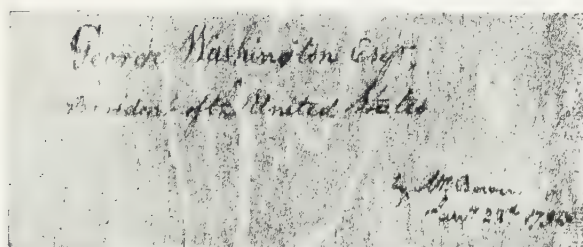 George Washington Esqr.
President of the United States
by Mr.
23d